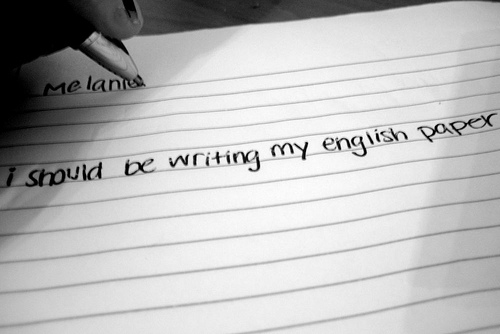 Melanie
i should be writing my english paper